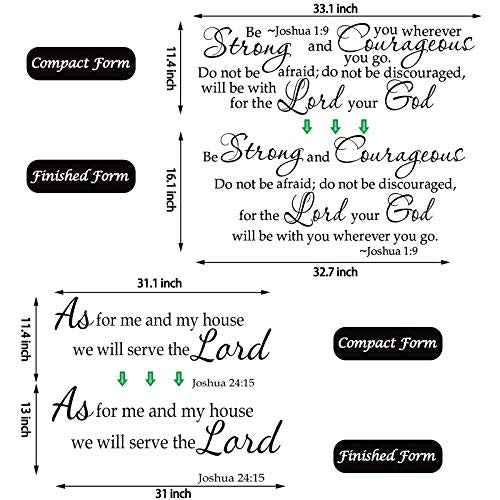 33.1 inch
Compact Form
11.4 inch
Be ~Joshua 1:9 you wherever
Strong and Courageous
you go.
Do not be afraid; do not be discouraged,
will be with
for the Lord your God
Finished Form
16.1 inch
Be Strong and Courageous
Do not be afraid; do not be discouraged,
for the Lord your God
will be with you wherever you go.
~Joshua 1:9
32.7 inch
31.1 inch
11.4 inch
As for me and my house
we will serve the Lord
Joshua 24:15
Compact Form
13 inch
As for me and my house
we will serve the Lord
Joshua 24:15
31 inch
Finished Form